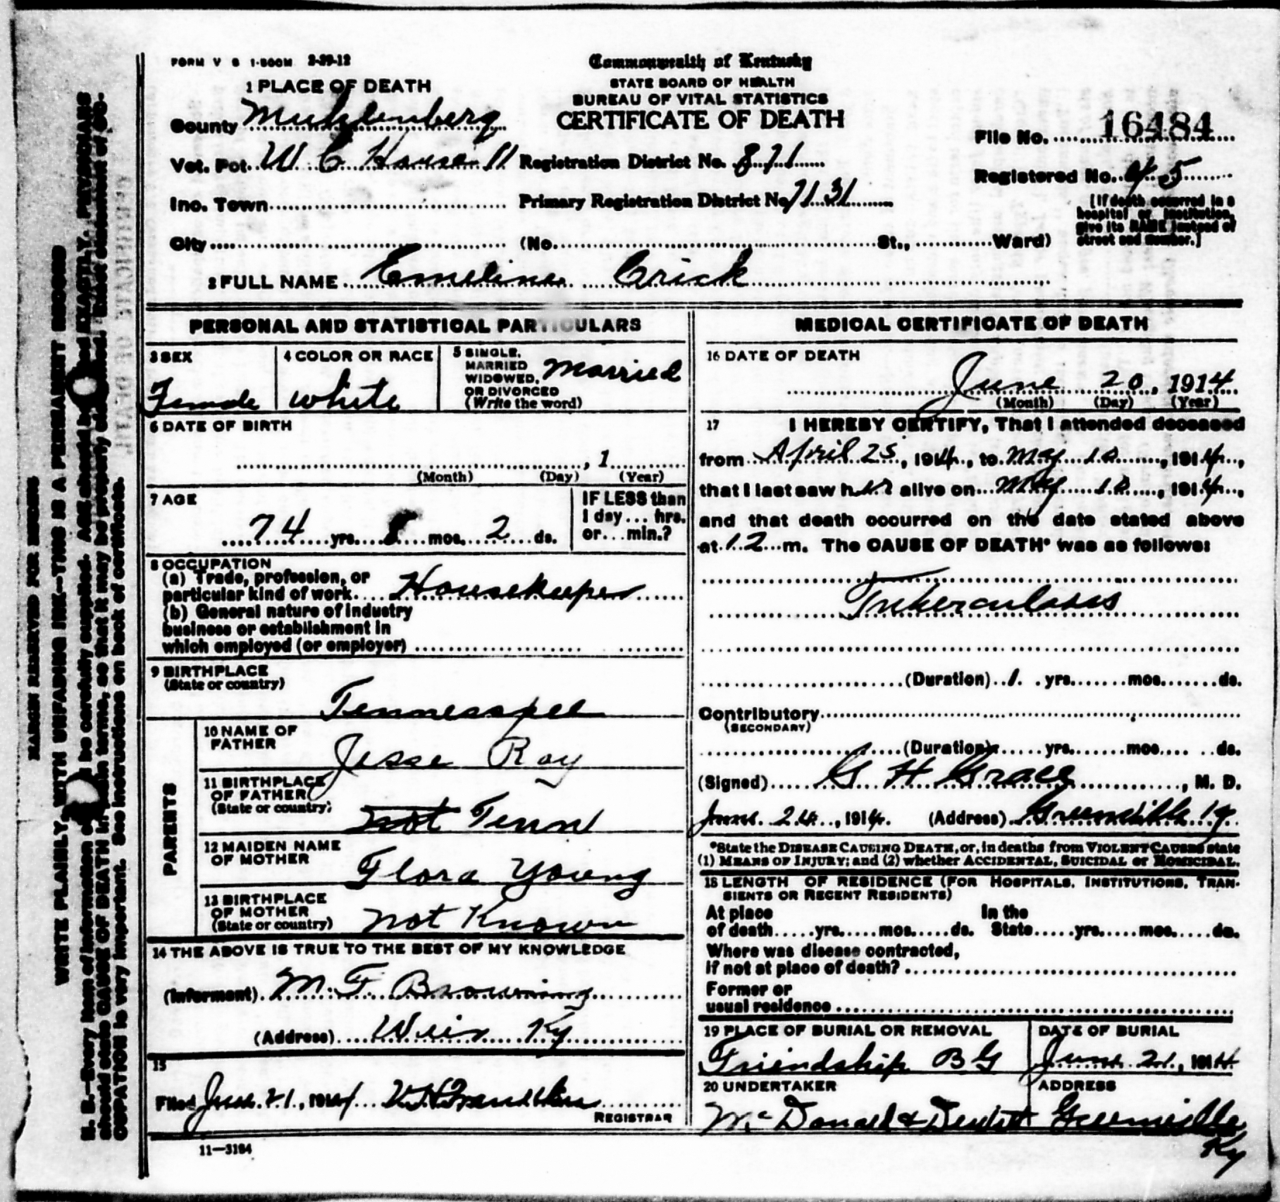 FORM V S 1-500M 2-29-12
Commonwealth of Kentucky
STATE BOARD OF HEALTH
BUREAU OF VITAL STATISTICS
CERTIFICATE OF DEATH
1 PLACE OF DEATH
County Muhlenberg
File No. 16484
Vot. Pct. W C House 11 Registration District No. 871
Registered No. 45
Inc. Town Primary Registration District No 7131
[If death occurred in a hospital or institution, give its NAME instead of street and number.]
City (No. St., Ward)
2 FULL NAME Emeline Crick
PERSONAL AND STATISTICAL PARTICULARS
3 SEX
Female
4 COLOR OR RACE
white
5 SINGLE, MARRIED WIDOWED, OR DIVORCED (Write the word)
Married
6 DATE OF BIRTH
, 1
(Month) (Day) (Year)
7 AGE
74 yrs. 8 mos. 2 ds.
IF LESS than 1 day ... hrs. or ... min.?
8 OCCUPATION
(a) Trade, profession, or
particular kind of work Housekeeper
(b) General nature of industry
business or establishment in
which employed (or employer)
9 BIRTHPLACE
(State or country)
Tennessee
PARENTS
10 NAME OF FATHER
Jesse Roy
11 BIRTHPLACE OF FATHER (State or country)
not Tenn
12 MAIDEN NAME OF MOTHER
Flora Young
13 BIRTHPLACE OF MOTHER (State or country)
not Known
14 THE ABOVE IS TRUE TO THE BEST OF MY KNOWLEDGE
(Informant) M. F Browning
(Address) Weir Ky
15
Filed June 21, 1914
REGISTRAR
11—3184
MEDICAL CERTIFICATE OF DEATH
16 DATE OF DEATH
June 20, 1914
(Month) (Day) (Year)
17 I HEREBY CERTIFY, That I attended deceased
from April 25, 1914, to May 12, 1914,
that I last saw her alive on May 12, 1914,
and that death occurred on the date stated above
at 12 m. The CAUSE OF DEATH* was as follows:
Tuberculosis
(Duration) 1 yrs. mos. ds.
Contributory
(SECONDARY)
(Duration) yrs. mos. ds.
(Signed) G H Grace, M. D.
June 24, 1914. (Address) Greenville Ky
*State the DISEASE CAUSING DEATH, or, in deaths from VIOLENT CAUSES state
(1) MEANS OF INJURY; and (2) whether ACCIDENTAL, SUICIDAL or HOMICIDAL.
18 LENGTH OF RESIDENCE (FOR HOSPITALS, INSTITUTIONS, TRAN-
SIENTS OR RECENT RESIDENTS)
At place of death yrs. mos. ds. In the State yrs. mos. ds.
Where was disease contracted,
If not at place of death?
Former or
usual residence
19 PLACE OF BURIAL OR REMOVAL
Friendship B G
DATE OF BURIAL
June 21, 1914
20 UNDERTAKER
McDonald &
ADDRESS
Greenville Ky
MARGIN RESERVED FOR BINDING
WRITE PLAINLY, WITH UNFADING INK—THIS IS A PERMANENT RECORD
N. B.—Every item of information be carefully supplied. AGE should be stated EXACTLY. PHYSICIANS
should state CAUSE OF DEATH in plain terms, so that it may be properly classified. Exact statement of OC-
CUPATION is very important. See instructions on back of certificate.